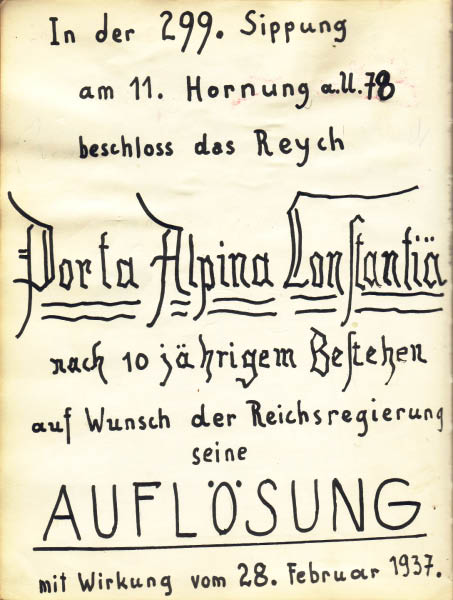 In der 299. Sippung
am 11. Hornung a.U. 78
beschloss das Reych
Porta Alpina Constantiä
nach 10 jährigem Bestehen
auf Wunsch der Reichsregierung
seine
AUFLÖSUNG
mit Wirkung vom 28. Februar 1937.